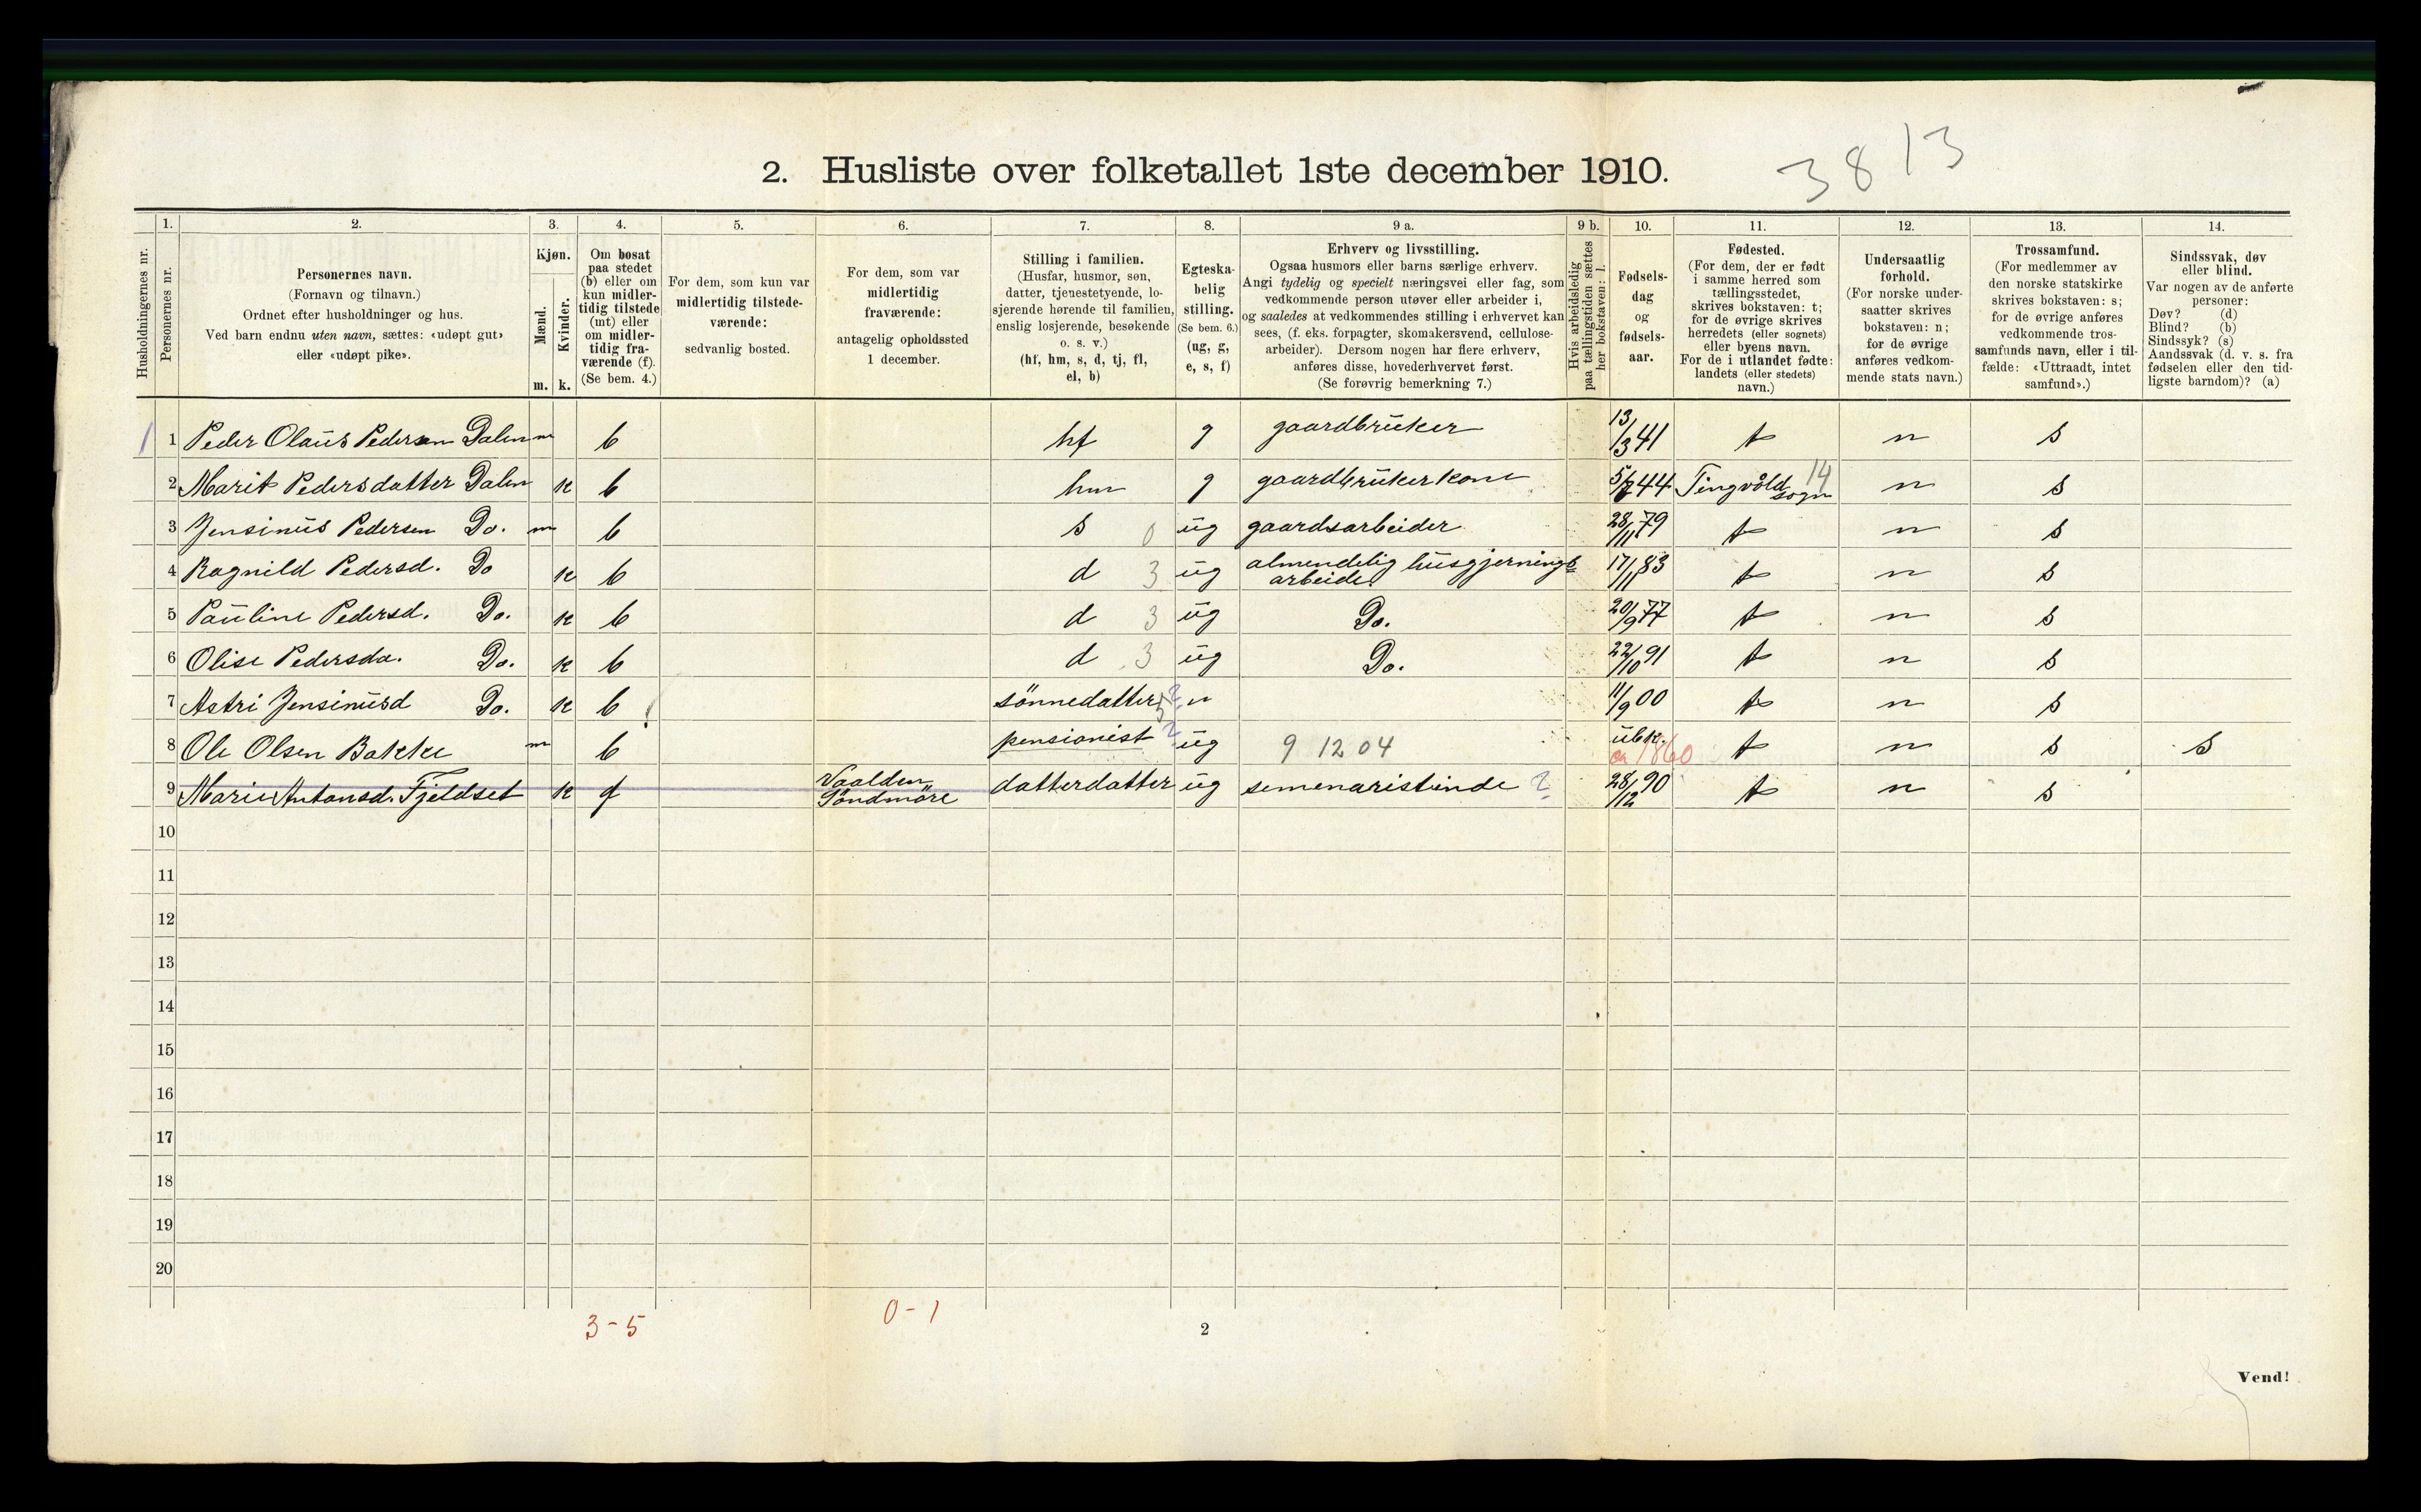 2. Husliste over folketallet 1ste december 1910.
3813
Husholdningernes nr.
1.
Personernes nr.
2.
Personernes navn.
(Fornavn og tilnavn.)
Ordnet efter husholdninger og hus.
Ved barn endnu uten navn, sættes: «udøpt gut»
eller «udøpt pike».
3.
Kjøn.
Mænd.
Kvinder.
m. k.
4.
Om bosat
paa stedet
(b) eller om
kun midler-
tidig tilstede
(mt) eller
om midler-
tidig fra-
værende (f).
(Se bem. 4.)
5.
For dem, som kun var
midlertidig tilstede-
værende:
sedvanlig bosted.
6.
For dem, som var
midlertidig
fraværende:
antagelig opholdssted
1 december.
7.
Stilling i familien.
(Husfar, husmor, søn,
datter, tjenestetyende, lo-
sjerende hørende til familien,
enslig losjerende, besøkende
o. s. v.)
(hf, hm, s, d, tj, fl,
el, b)
8.
Egteska-
belig
stilling.
(Se bem. 6.)
(ug, g,
e, s, f)
9 a.
Erhverv og livsstilling.
Ogsaa husmors eller barns særlige erhverv.
Angi tydelig og specielt næringsvei eller fag, som
vedkommende person utøver eller arbeider i,
og saaledes at vedkommendes stilling i erhvervet kan
sees, (f. eks. forpagter, skomakersvend, cellulose-
arbeider). Dersom nogen har flere erhverv,
anføres disse, hovederhvervet først.
(Se forøvrig bemerkning 7.)
9 b.
Hvis arbeidsledig
paa tællingstiden sættes
her bokstaven: l.
10.
Fødsels-
dag
og
fødsels-
aar.
11.
Fødested.
(For dem, der er født
i samme herred som
tællingsstedet,
skrives bokstaven: t;
for de øvrige skrives
herredets (eller sognets)
eller byens navn.
For de i utlandet fødte:
landets (eller stedets)
navn.)
12.
Undersaatlig
forhold.
(For norske under-
saatter skrives
bokstaven: n;
for de øvrige
anføres vedkom-
mende stats navn.)
13.
Trossamfund.
(For medlemmer av
den norske statskirke
skrives bokstaven: s;
for de øvrige anføres
vedkommende tros-
samfunds navn, eller i til-
fælde: «Uttraadt, intet
samfund».)
14.
Sindssvak, døv
eller blind.
Var nogen av de anførte
personer:
Døv? (d)
Blind? (b)
Sindssyk? (s)
Aandssvak (d. v. s. fra
fødselen eller den tid-
ligste barndom)? (a)
1 1 Peder Olaus Pedersen Dalen m b hf g gaardbruker 13/3 41 t n s
2 Marit Pedersdatter Dalen k b hm g gaardbruker kone 5/7 44 Tingvold sogn 14 n s
3 Jensinus Pedersen Do. m b s 0 ug gaardsarbeider 28/11 79 t n s
4 Ragnild Pedersd. Do k b d 3 ug almendelig husgjernings arbeide. 17/11 83 t n s
5 Pauline Pedersd. Do. k b d 3 ug Do. 20/9 77 t n s
6 Olise Pedersda. Do. k b d 3 ug Do. 22/10 91 t n s
7 Astri Jensinusd Do. k b sönnedatter 5 ? " 11/9 00 t n s
8 Ole Olsen Bakke m b pensionist ? ug 9 12 04 ubk. ca 1860 t n s s
9 Marie Antonsd. Fjeldset k f Vaalden Söndmöre datterdatter ug semenaristinde ? 28/12 90 t n s
10
11
12
13
14
15
16
17
18
19
20
3-5
0-1
2
Vend!